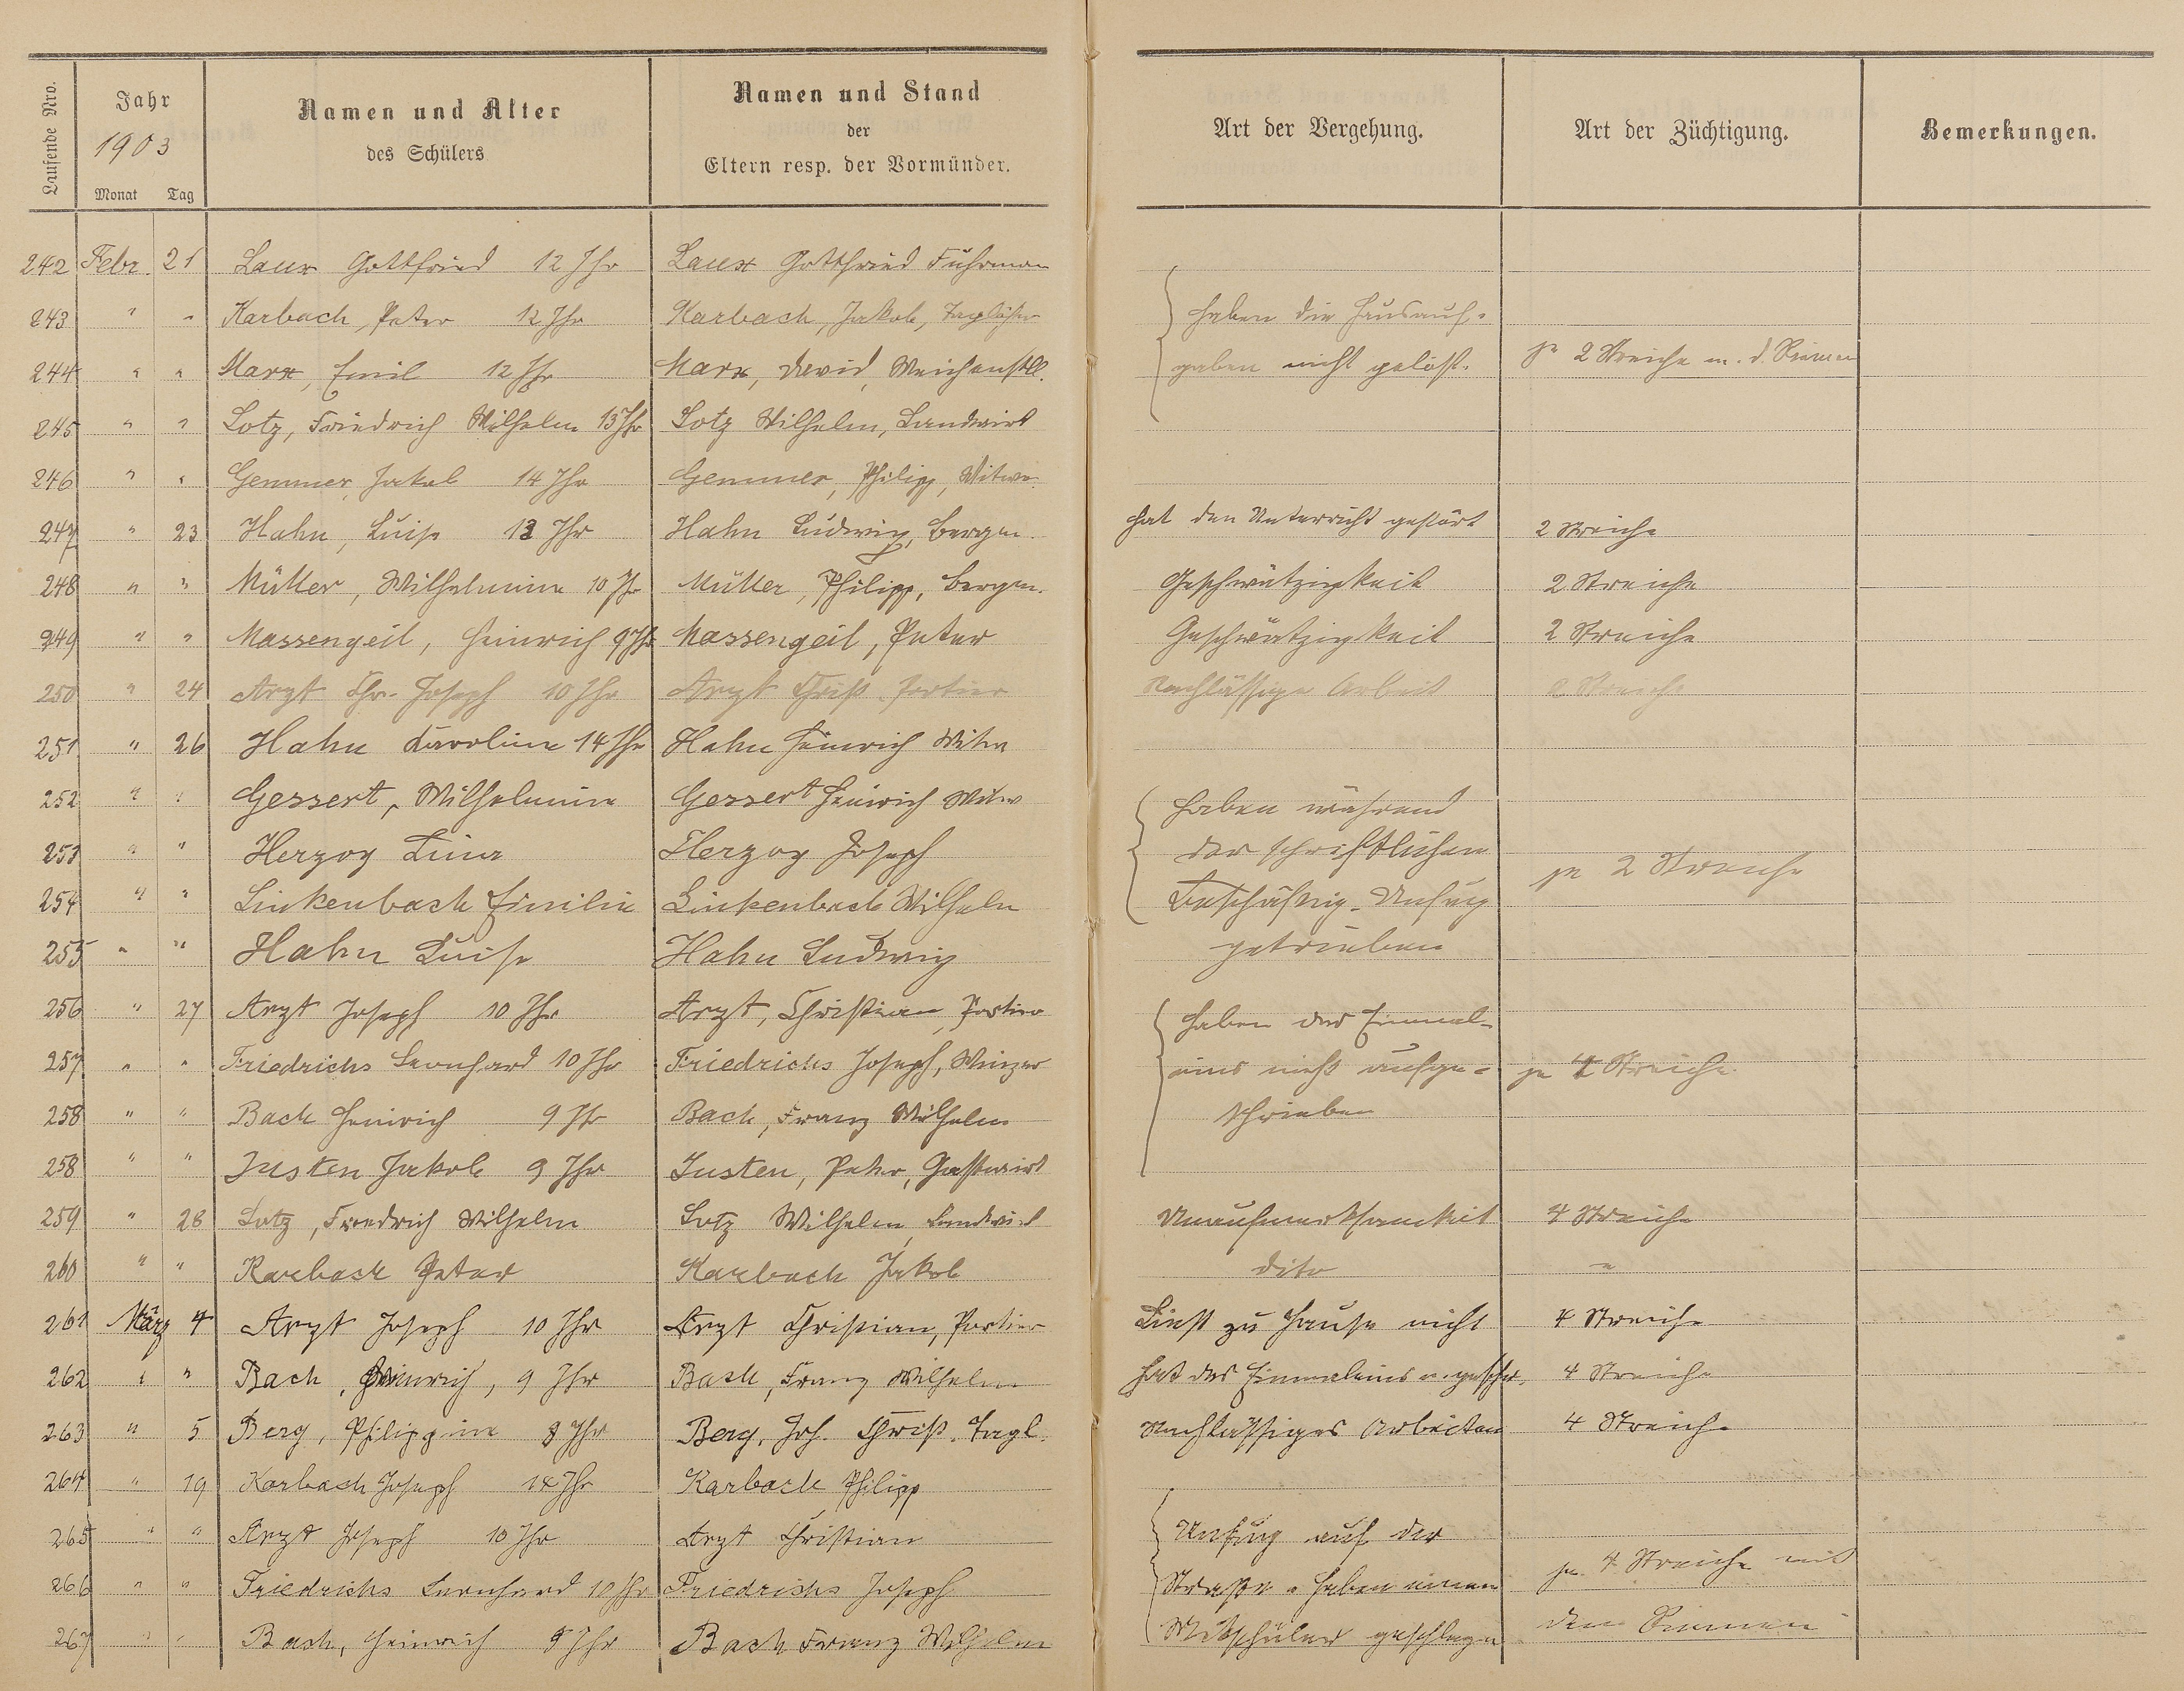 Laufende Nro. Jahr 1903 Monat Tag
Namen und Alter des Schülers
Namen und Stand der Eltern resp. der Vormünder.
Art der Vergehung.
Art der Züchtigung.
Bemerkungen.
242 Febr. 21 Laux Gottfried 12 Jhr Laux Gottfried Fuhrman
243 " " Karbach, Peter 12 Jhr Karbach, Jakob, Taglöhner haben die Hausauf-
244 " " Marx, Emil 12 Jhr Marx, David, gaben nicht gelöst. je 2 Streiche m. d. Riemen
245 " " Lotz, Friedrich Wilhelm 13 Jhr Lotz Wilhelm, Landwirt
246 " " Gemmer, Jakob 14 Jhr Gemmer, Philipp, Witwe
247 " 23 Hahn, Luise 13 Jhr Hahn Ludwig, Bergm. hat den Unterricht gestört 2 Streiche
248 " " Müller, Wilhelmine 10 Jh Müller, Philipp, Bergm. Geschwätzigkeit 2 Streiche
249 " " Massengeil, Heinrich 9 Jhr Massengeil, Peter Geschwätzigkeit 2 Streiche
250 " 24 Arzt Chr. Joseph 10 Jhr Arzt Christ. Portier Nachlässige Arbeit 2 Streiche
251 " 26 Hahn Karoline 14 Jhr Hahn Heinrich Witw
252 " " Gessert, Wilhelmine Gessert Heinrich Witw haben während
253 " " Herzog Lina Herzog Joseph der schriftlichen je 2 Streiche
254 " " Linkenbach Emilie Linkenbach Wilhelm Beschäftig. Unfug
255 " " Hahn Luise Hahn Ludwig getrieben
256 " 27 Arzt Joseph 10 Jhr Arzt, Christian, Portier haben das Einmal-
257 " " Friedrichs Leonhard 10 Jhr Friedrichs Joseph, Winzer eins nicht aufge- je 4 Streiche
258 " " Bach Heinrich 9 Jhr Bach, Franz Wilhelm schrieben
258 " " Justen Jakob 9 Jhr Justen, Peter, Gastwirt
259 " 28 Lotz, Friedrich Wilhelm Lotz Wilhelm, Landwirt Unaufmerksamkeit 4 Streiche
260 " " Karbach Peter Karbach Jakob dito "
261 März 4 Arzt Joseph 10 Jhr Arzt Christian, Portier Liest zu Hause nicht 4 Streiche
262 " " Bach, Heinrich, 9 Jhr Bach, Franz Wilhelm hat das Einmaleins n. geschr. 4 Streiche
263 " 5 Berg, Philippine 8 Jhr Berg, Joh. Christ. Tagl. Nachlässiges Arbeiten 4 Streiche
264 " 19 Karbach Joseph 14 Jhr Karbach Philipp
265 " " Arzt Joseph 10 Jhr Arzt Christian Unfug auf der
266 " " Friedrichs Leonhard 10 Jhr Friedrichs Joseph Straße. haben einen je 4 Streiche mit
267 " " Bach, Heinrich 9 Jhr Bach Franz Wilhelm Mitschüler geschlagen dem Riemen